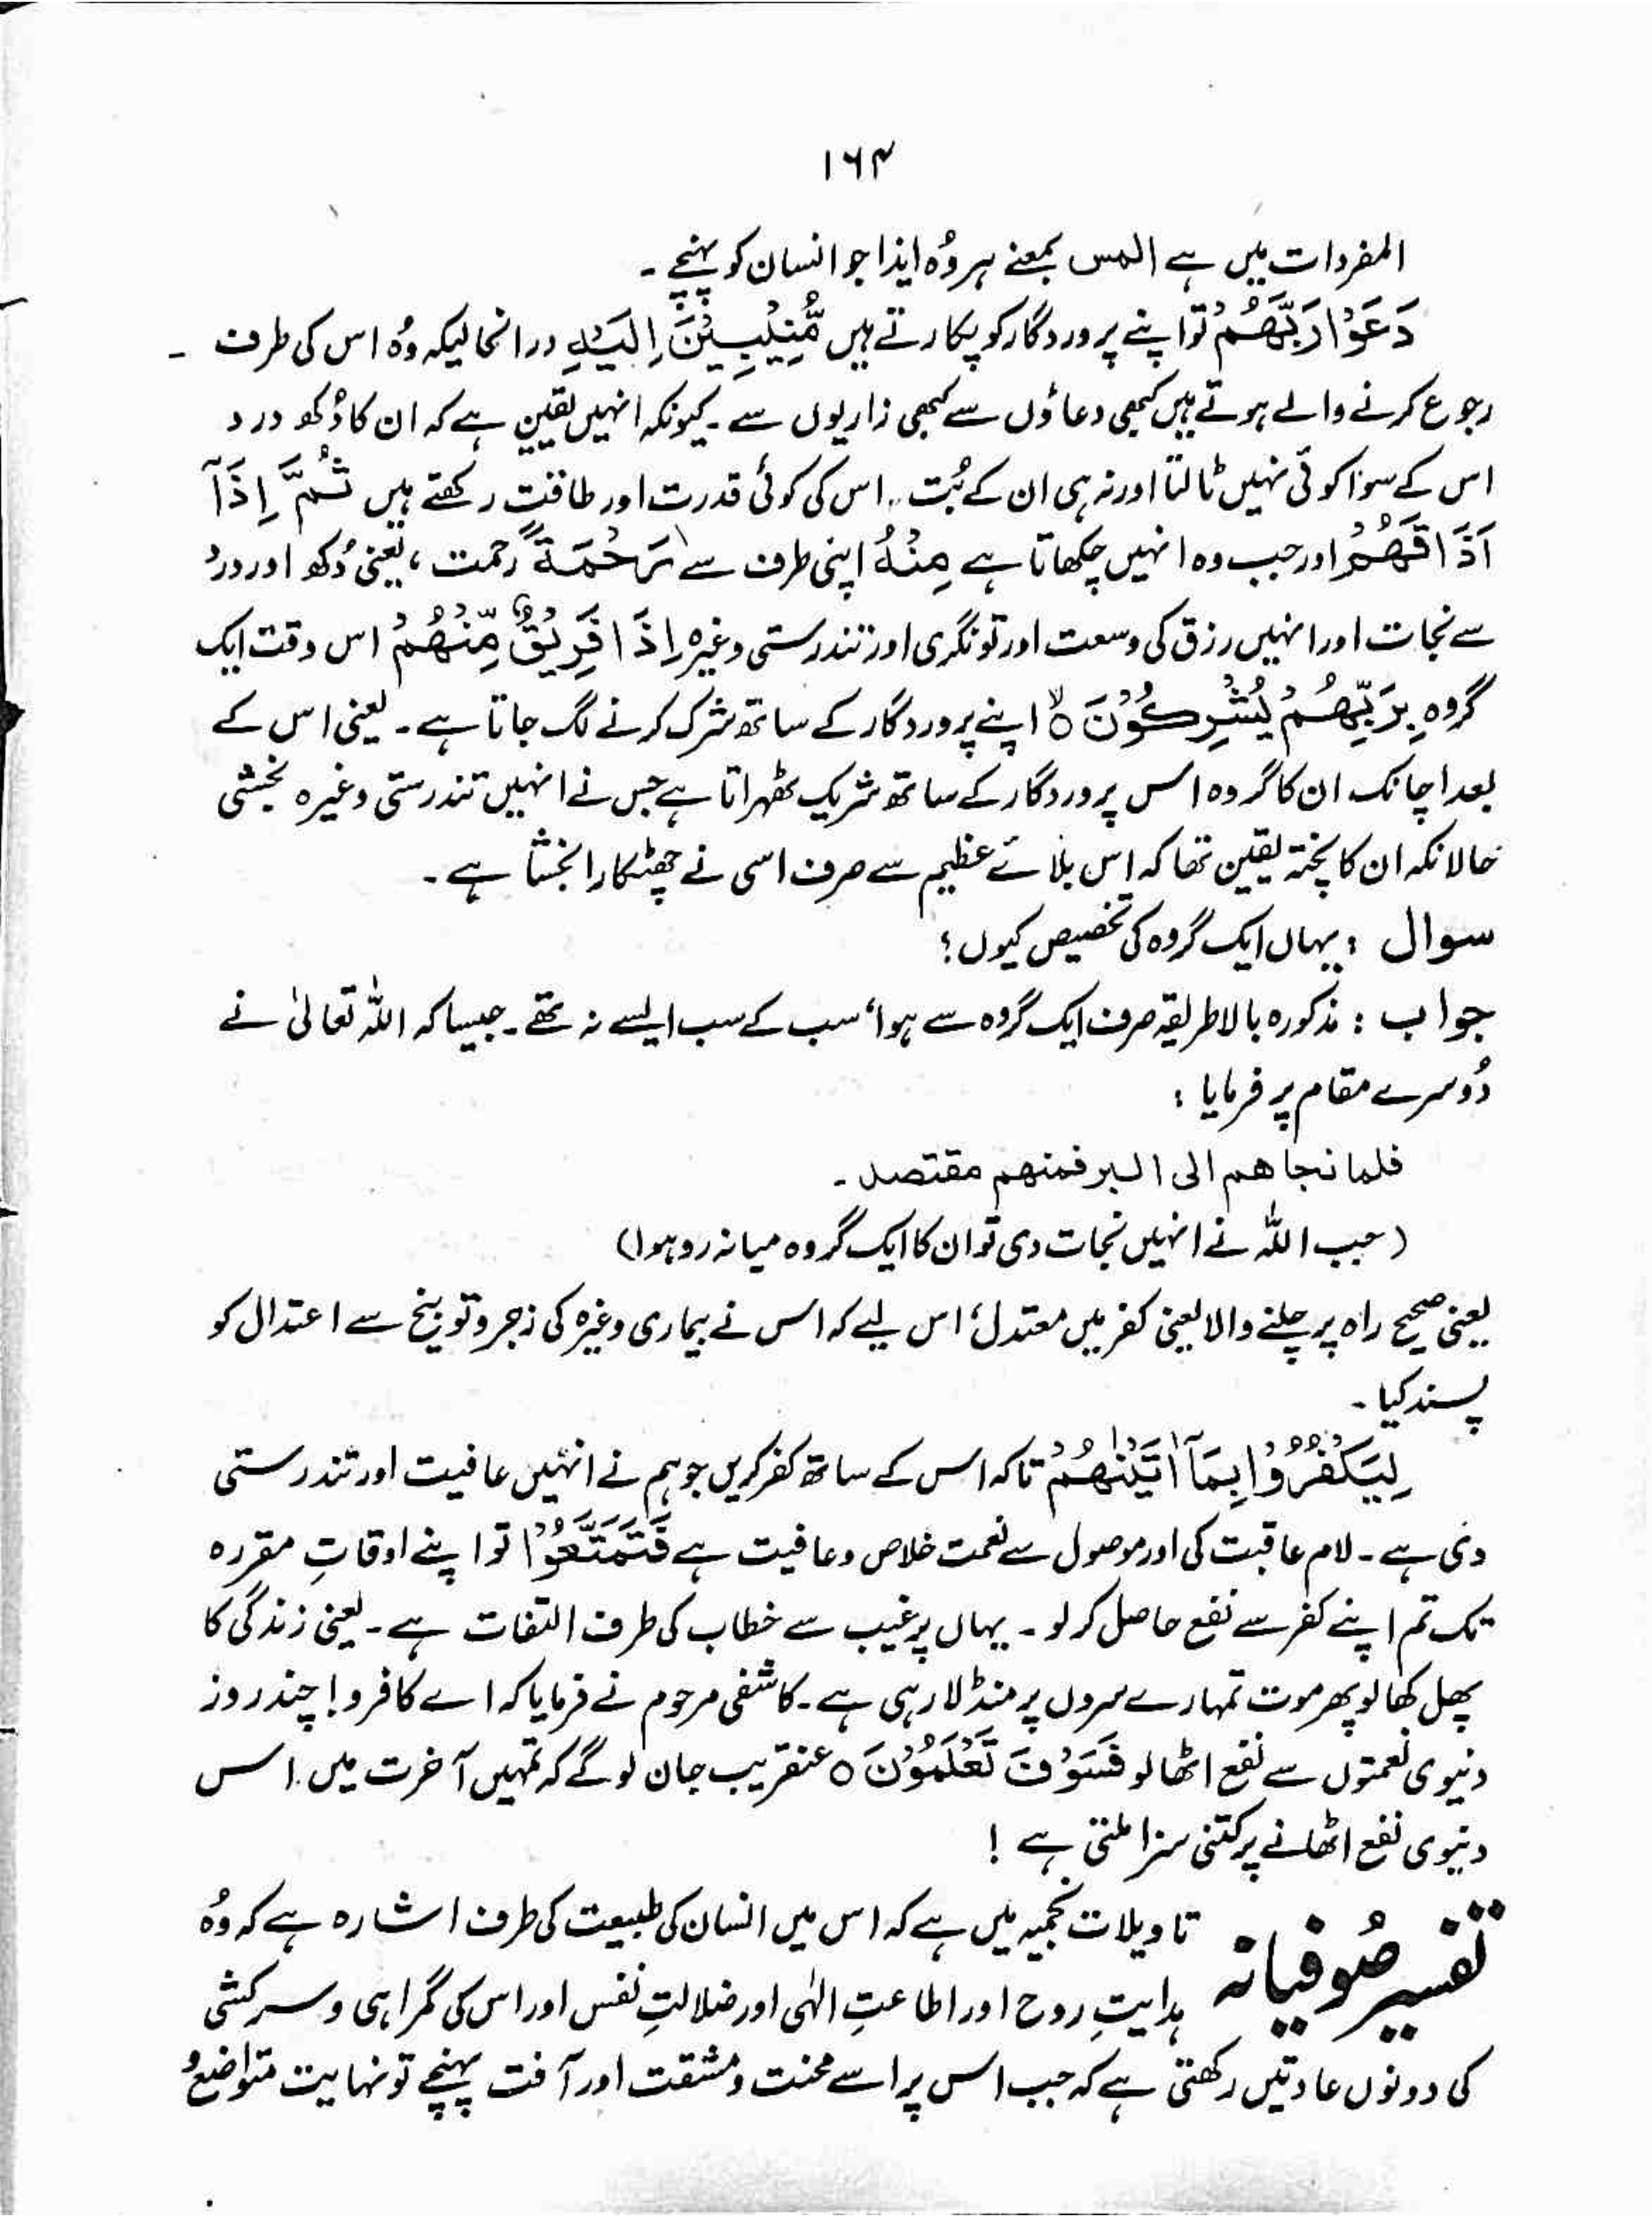 ۱۶۴
المفردات میں ہے المس بمعنے ہر وُہ ایذا جو انسان کو پہنچے ۔
دَعَوْا رَبَّهُمْ تو اپنے پروردگار کو پکارتے ہیں مُّنِيْبِيْنَ اِلَيْهِ درانحالیکہ وُہ اس کی طرف ۔
رجوع کرنے والے ہوتے ہیں کبھی دعاؤں سے کبھی زاریوں سے ۔ کیونکہ انہیں یقین ہے کہ ان کا دُکھ درد
اس کے سوا کوئی نہیں ٹالتا اور نہ ہی ان کے بُت اس کی کوئی قدرت اور طاقت رکھتے ہیں ثُمَّ اِذَآ
اَذَاقَهُمْ اور جب وہ انہیں چکھاتا ہے مِنْهُ اپنی طرف سے رَحْمَةً رحمت ، یعنی دُکھ اور درد
سے نجات اور انہیں رزق کی وسعت اور تونگری اور تندرستی وغیرہ اِذَا فَرِيْقٌ مِّنْهُمْ اس وقت ایک
گروہ بِرَبِّهِمْ يُشْرِكُوْنَ ۝ۙ اپنے پروردگار کے ساتھ شرک کرنے لگ جاتا ہے ۔ یعنی اس کے
بعد اچانک ان کا گروہ اس پروردگار کے ساتھ شریک ٹھہراتا ہے جس نے انہیں تندرستی وغیرہ بخشی
حالانکہ ان کا پختہ یقین تھا کہ اس بلائے عظیم سے صرف اسی نے چھٹکارا بخشا ہے ۔
سوال : یہاں ایک گروہ کی تخصیص کیوں ؟
جواب : مذکورہ بالا طریقہ صرف ایک گروہ سے ہوا ، سب کے سب ایسے نہ تھے ۔ جیسا کہ اللہ تعالیٰ نے
دُوسرے مقام پر فرمایا :
فلما نجاهم الى البر فمنهم مقتصد ۔
( جب اللہ نے انہیں نجات دی تو ان کا ایک گروہ میانہ رو ہوا )
یعنی صحیح راہ پر چلنے والا یعنی کفر میں معتدل ، اس لیے کہ اس نے بیماری وغیرہ کی زجر و توبیخ سے اعتدال کو
پسند کیا ۔
لِيَكْفُرُوْا بِمَآ اٰتَيْنٰهُمْ تاکہ اس کے ساتھ کفر کریں جو ہم نے انہیں عافیت اور تندرستی
دی ہے ۔ لام عاقبت کی اور موصول سے نعمت خلاص و عافیت ہے فَتَمَتَّعُوْا تو اپنے اوقاتِ مقررہ
تک تم اپنے کفر سے نفع حاصل کر لو ۔ یہاں پر غیب سے خطاب کی طرف التفات ہے ۔ یعنی زندگی کا
پھل کھا لو پھر موت تمہارے سروں پر منڈلا رہی ہے ۔ کاشفی مرحوم نے فرمایا کہ اے کافرو ! چند روز
دنیوی نعمتوں سے نفع اٹھا لو فَسَوْفَ تَعْلَمُوْنَ ۝ عنقریب جان لو گے کہ تمہیں آخرت میں اس
دنیوی نفع اٹھانے پر کتنی سزا ملتی ہے !
تفسیر صُوفیانہ تاویلات نجمیہ میں ہے کہ اس میں انسان کی طبیعت کی طرف اشارہ ہے کہ وُہ
ہدایتِ روح اور اطاعتِ الٰہی اور ضلالتِ نفس اور اس کی گمراہی و سرکشی
کی دونوں عادتیں رکھتی ہے کہ جب اس پر اسے محنت و مشقت اور آفت پہنچے تو نہایت متواضع و